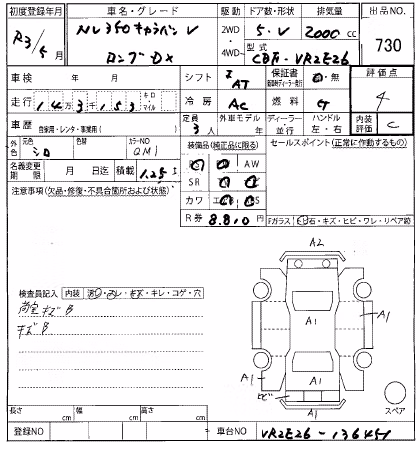 初度登録年月 車名・グレード 駆動 ドア数・形状 排気量 出品NO.
R3/5月 NV350キャラバンV ロングDX 2WD 4WD 5・V 2000cc 730
型式 CBF-VR2E26
車検 年 月 シフト I AT 保証書 有・無 評価点 4
走行 14万3千153 キロ マイル 冷房 AC 燃料 G
車歴 自家用・レンタ・事業用( ) 定員 3人 外車モデル 年 ディーラー 並行 ハンドル 左・右 内装評価 C
外色 元色 シロ 色替 カラーNO QM1 装備品(純正品に限る) セールスポイント(正常に作動するもの)
名義変更期限 月 日迄 積載 1.25t
AW
SR
カワ
注意事項(欠品・修復・不具合箇所および状態) R券 8,810円
Fガラス 石・キズ・ヒビ・ワレ・リペア跡
A2
検査員記入 内装 汚・スレ・キズ・キレ・コゲ・穴
荷室キズB
キズB
A1 A1 A1
A1
A1
ヒビ
A1
スペア
長さ cm 幅 cm 高さ cm
登録NO 車台NO VR2E26-136451